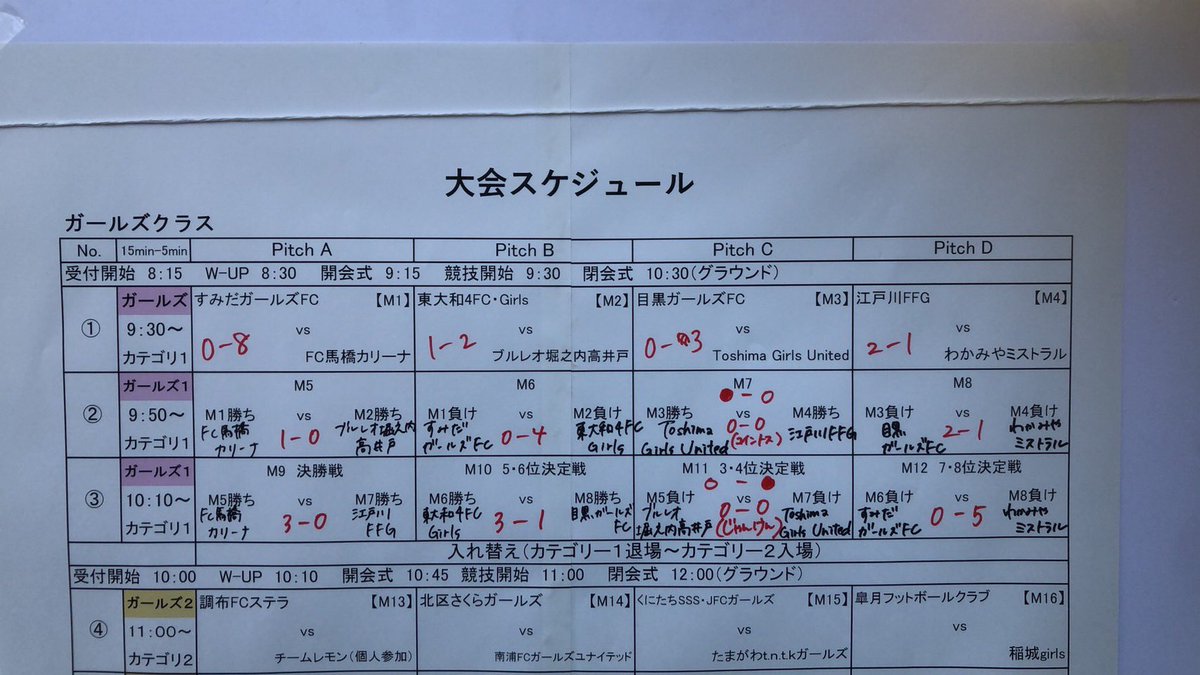 大会スケジュール
ガールズクラス
No. 15min-5min Pitch A Pitch B Pitch C Pitch D
受付開始 8:15 W-UP 8:30 開会式 9:15 競技開始 9:30 閉会式 10:30(グラウンド)
ガールズ すみだガールズFC 【M1】 東大和4FC・Girls 【M2】 目黒ガールズFC 【M3】 江戸川FFG 【M4】
① 9:30～ vs vs vs vs
0-8 1-2 0-3 2-1
カテゴリ1 FC馬橋カリーナ ブルレオ堀之内高井戸 Toshima Girls United わかみやミストラル
ガールズ1 M5 M6 M7 M8
● - ○
② 9:50～ M1勝ち vs M2勝ち M1負け vs M2負け M3勝ち vs M4勝ち M3負け vs M4負け
FC馬橋 カリーナ 1-0 ブルレオ堀之内 高井戸 すみだ ガールズFC 0-4 東大和4FC Girls Toshima Girls United 0-0 (コイントス) 江戸川FFG 目黒 ガールズFC 2-1 わかみや ミストラル
カテゴリ1
ガールズ1 M9 決勝戦 M10 5・6位決定戦 M11 3・4位決定戦 M12 7・8位決定戦
○ - ●
③ 10:10～ M5勝ち vs M7勝ち M6勝ち vs M8勝ち M5負け vs M7負け M6負け vs M8負け
FC馬橋 カリーナ 3-0 江戸川 FFG 東大和4FC Girls 3-1 目黒ガールズ FC ブルレオ 堀之内高井戸 0-0 (じゃんけん) Toshima Girls United すみだ ガールズFC 0-5 わかみや ミストラル
カテゴリ1
入れ替え(カテゴリー1退場～カテゴリー2入場)
受付開始 10:00 W-UP 10:10 開会式 10:45 競技開始 11:00 閉会式 12:00(グラウンド)
ガールズ2 調布FCステラ 【M13】 北区さくらガールズ 【M14】 くにたちSSS・JFCガールズ 【M15】 皐月フットボールクラブ 【M16】
④ 11:00～ vs vs vs vs
カテゴリ2 チームレモン(個人参加) 南浦FCガールズユナイテッド たまがわt.n.t.kガールズ 稲城girls